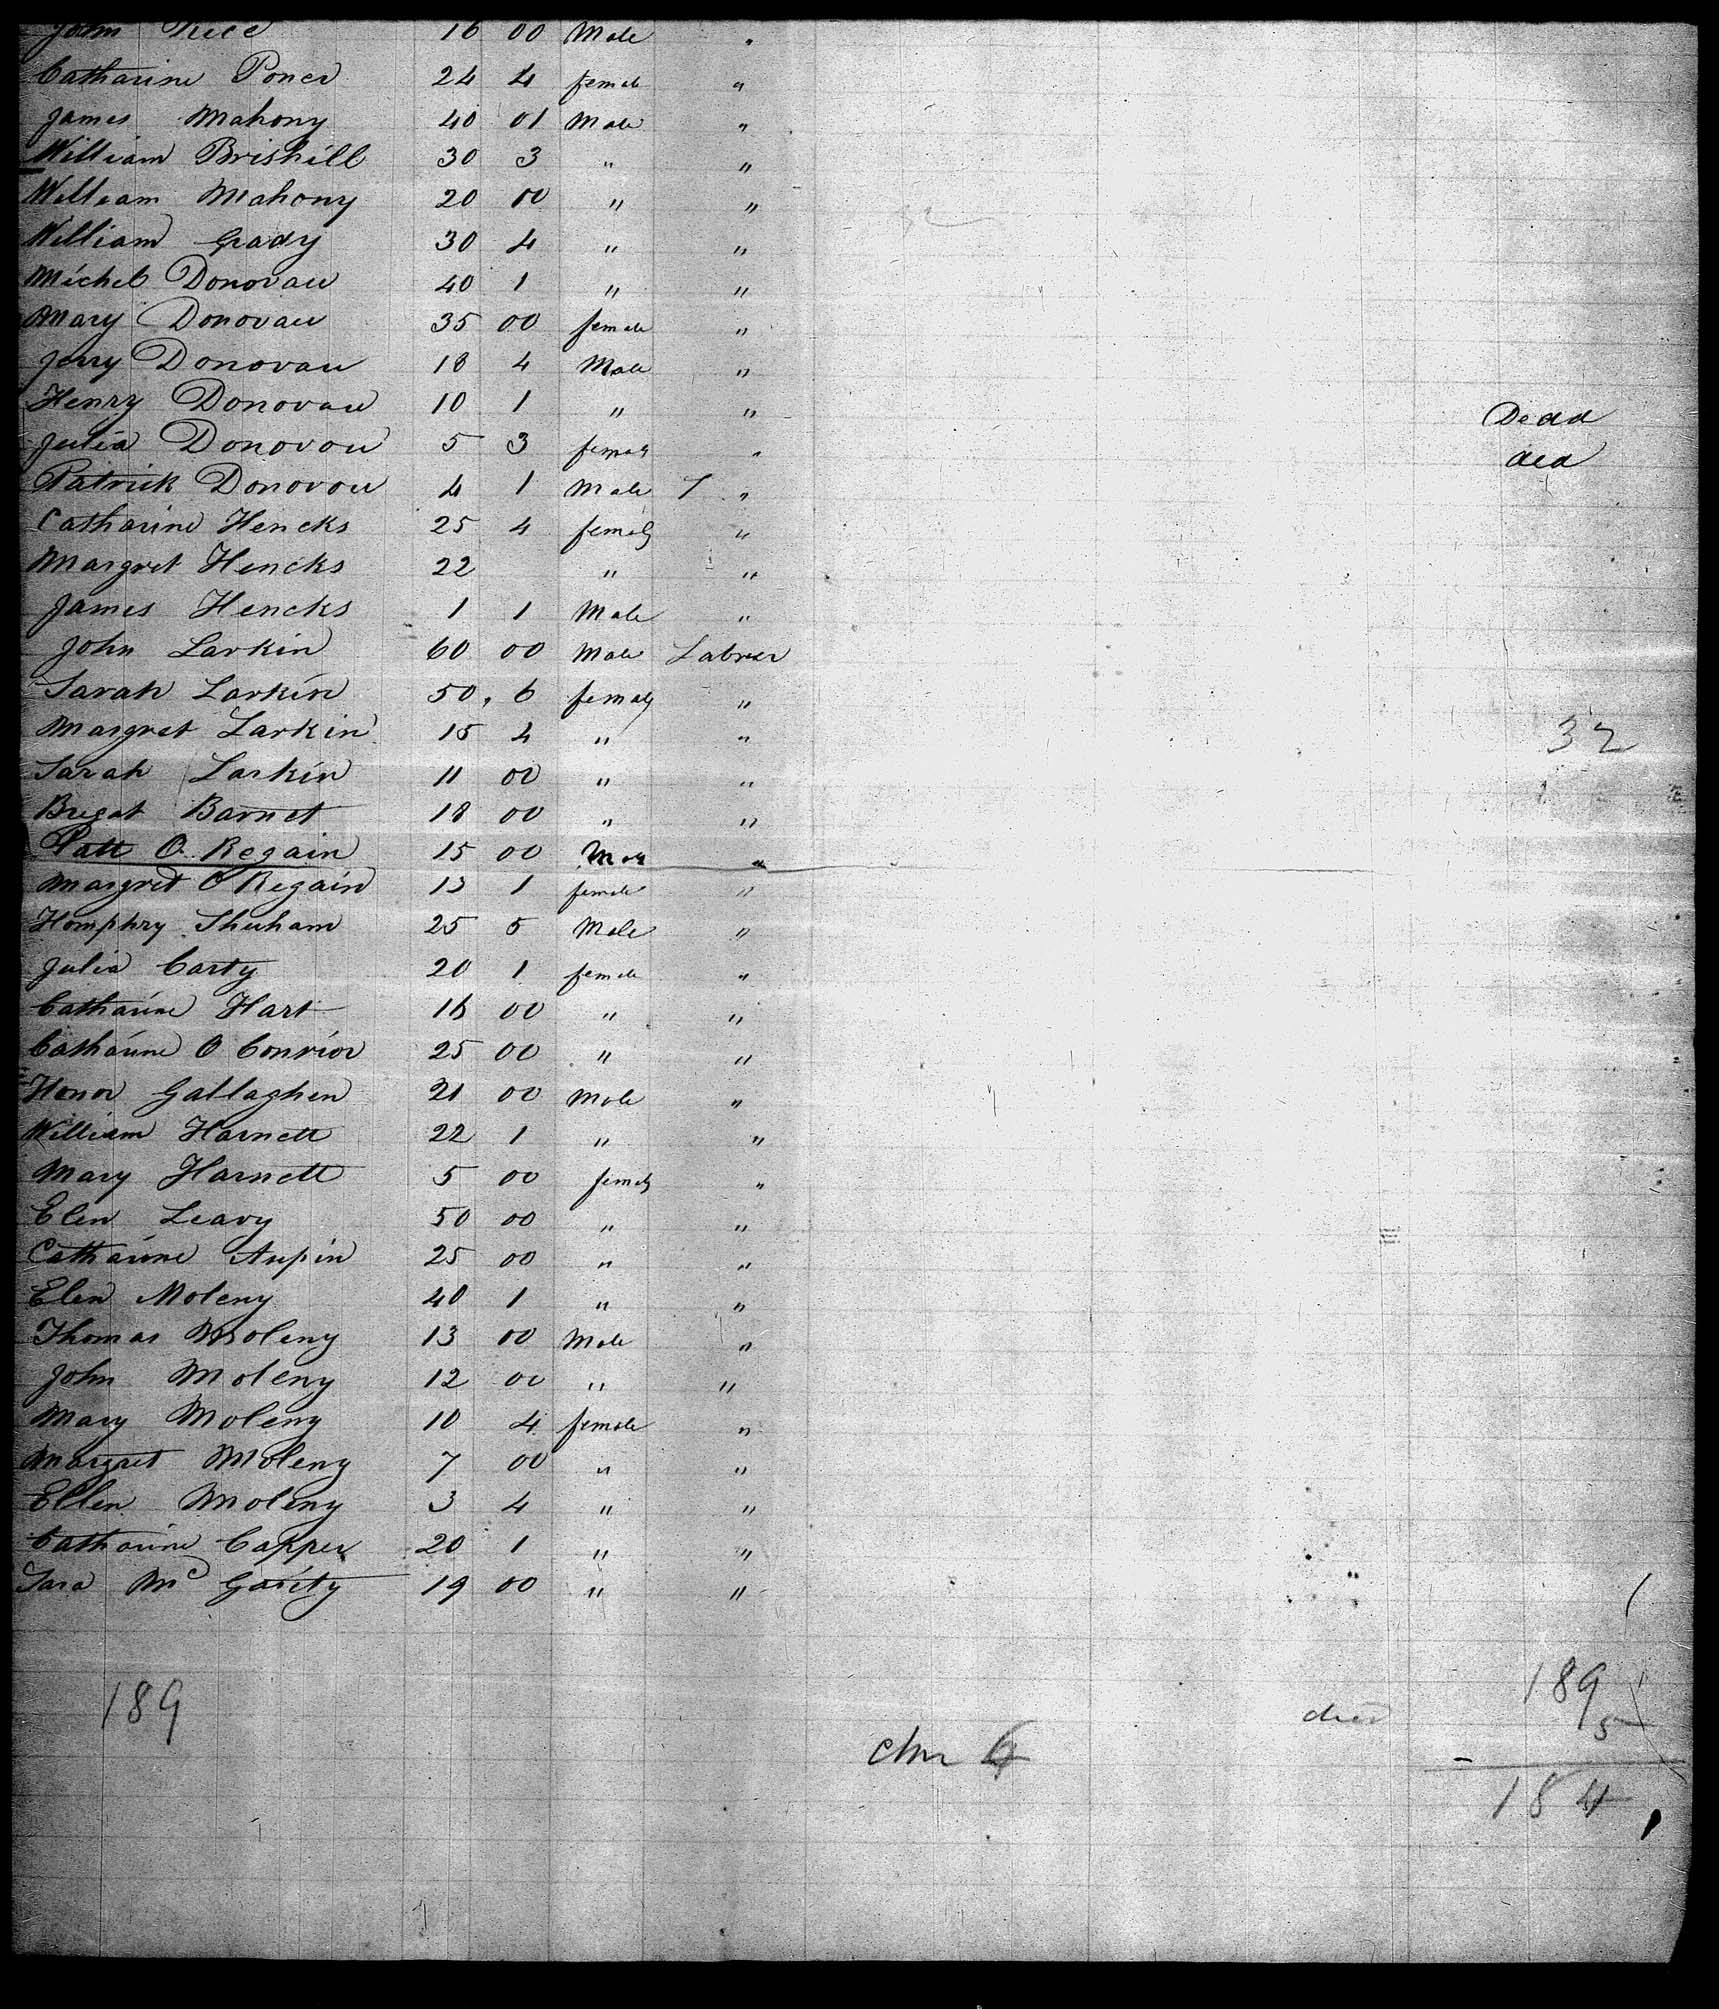 John Rice 16 00 Male "
Catharine Poner 24 4 female "
James Mahony 40 01 Male "
William Briskill 30 3 " "
William Mahony 20 00 " "
William Grady 30 4 " "
Michel Donovan 40 1 " "
Mary Donovan 35 00 female "
Jerry Donovan 18 4 Male "
Henry Donovan 10 1 " " Dead
Julia Donovon 5 3 female " ded
Patrick Donovon 4 1 Male 7 "
Catharine Hencks 25 4 female "
Margret Hencks 22 " "
James Hencks 1 1 Male "
John Larkin 60 00 Male Labrer
Sarah Larkin 50 6 female "
Margret Larkin 15 4 " " 32
Sarah Larkin 11 00 " "
Breget Barnet 18 00 " "
Patt O Regain 15 00 Male "
Margret O Regain 13 1 female "
Homphry Shuham 25 5 Male "
Julia Carty 20 1 female "
Catharine Hart 16 00 " "
Catharine O Connor 25 00 " "
Honor Gallaghen 21 00 Male "
William Harnett 22 1 " "
Mary Harnett 5 00 female "
Elen Leavy 50 00 " "
Catharine Aupin 25 00 " "
Elen Moleny 40 1 " "
Thomas Moleny 13 00 Male "
John Moleny 12 00 " "
Mary Moleny 10 4 female "
Margret Moleny 7 00 " "
Ellen Moleny 3 4 " "
Catharine Capper 20 1 " "
Sara Mc Garity 19 00 " "
189 189
died 5
184